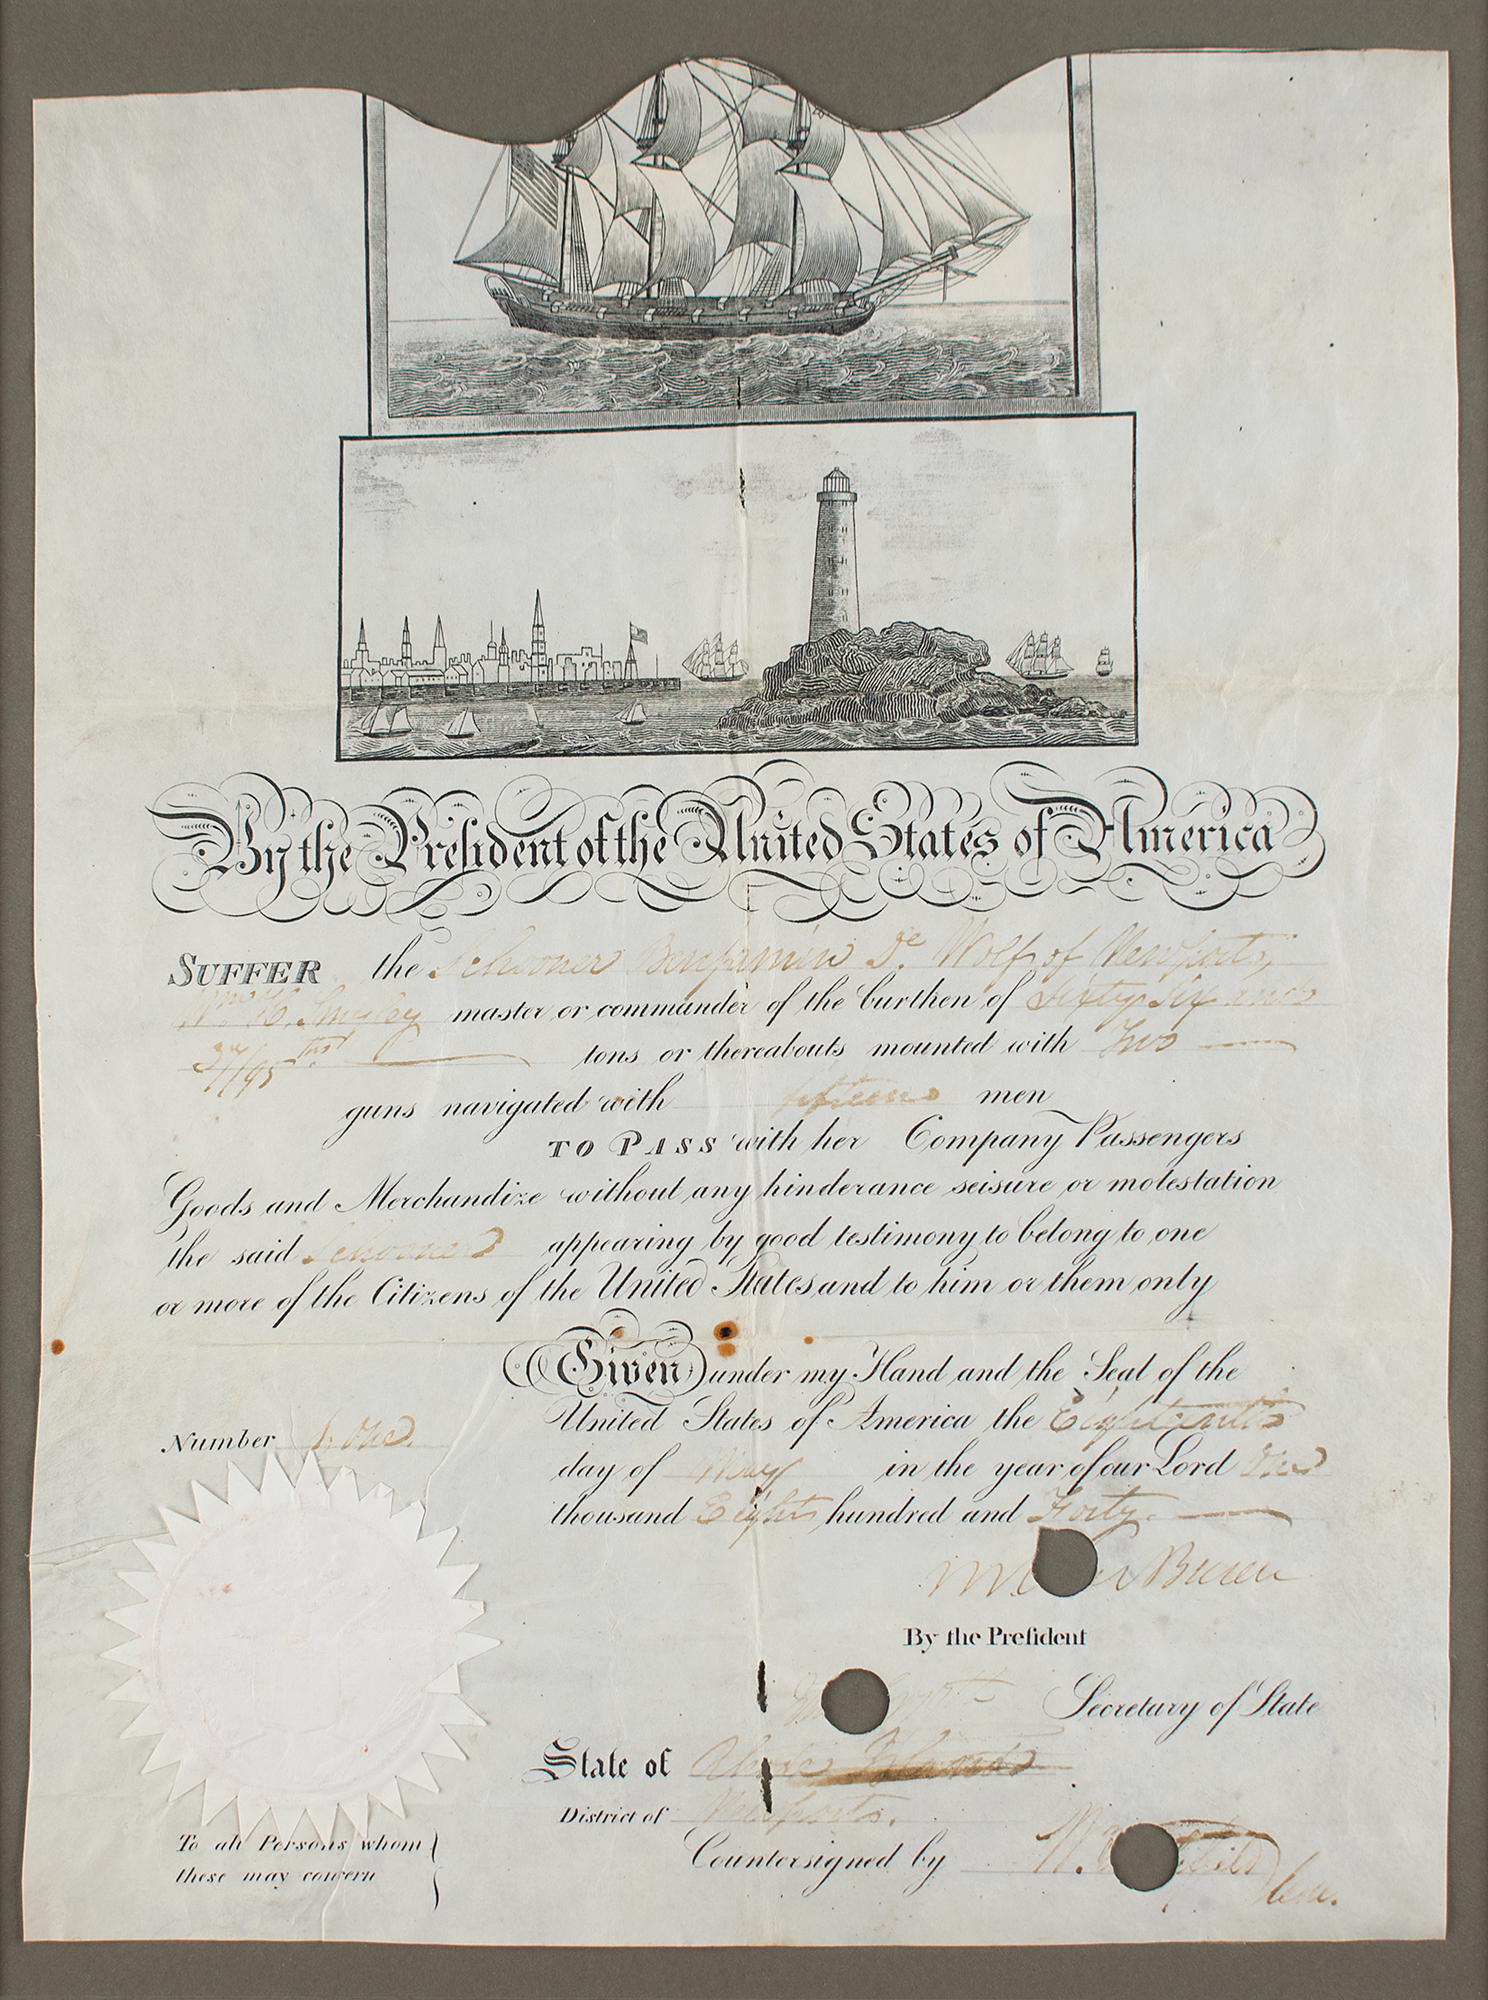 By the President of the United States of America
SUFFER the Schooner Benjamin De Wolf of Newport,
Wm H. master or commander of the burthen of Sixty Six and
/95ths tons or thereabouts mounted with Two
guns navigated with fifteen men
TO PASS with her Company Passengers
Goods and Merchandize without any hinderance seisure or molestation
the said Schooner appearing by good testimony to belong to one
or more of the Citizens of the United States and to him or them only
Given under my Hand and the Seal of the
United States of America the Eighteenth
Number 1. One.
day of May in the year of our Lord One
thousand Eight hundred and Forty.
M Buren
By the President
Secretary of State
State of Rhode Island
District of Newport.
To all Persons whom
these may concern
Countersigned by Wm